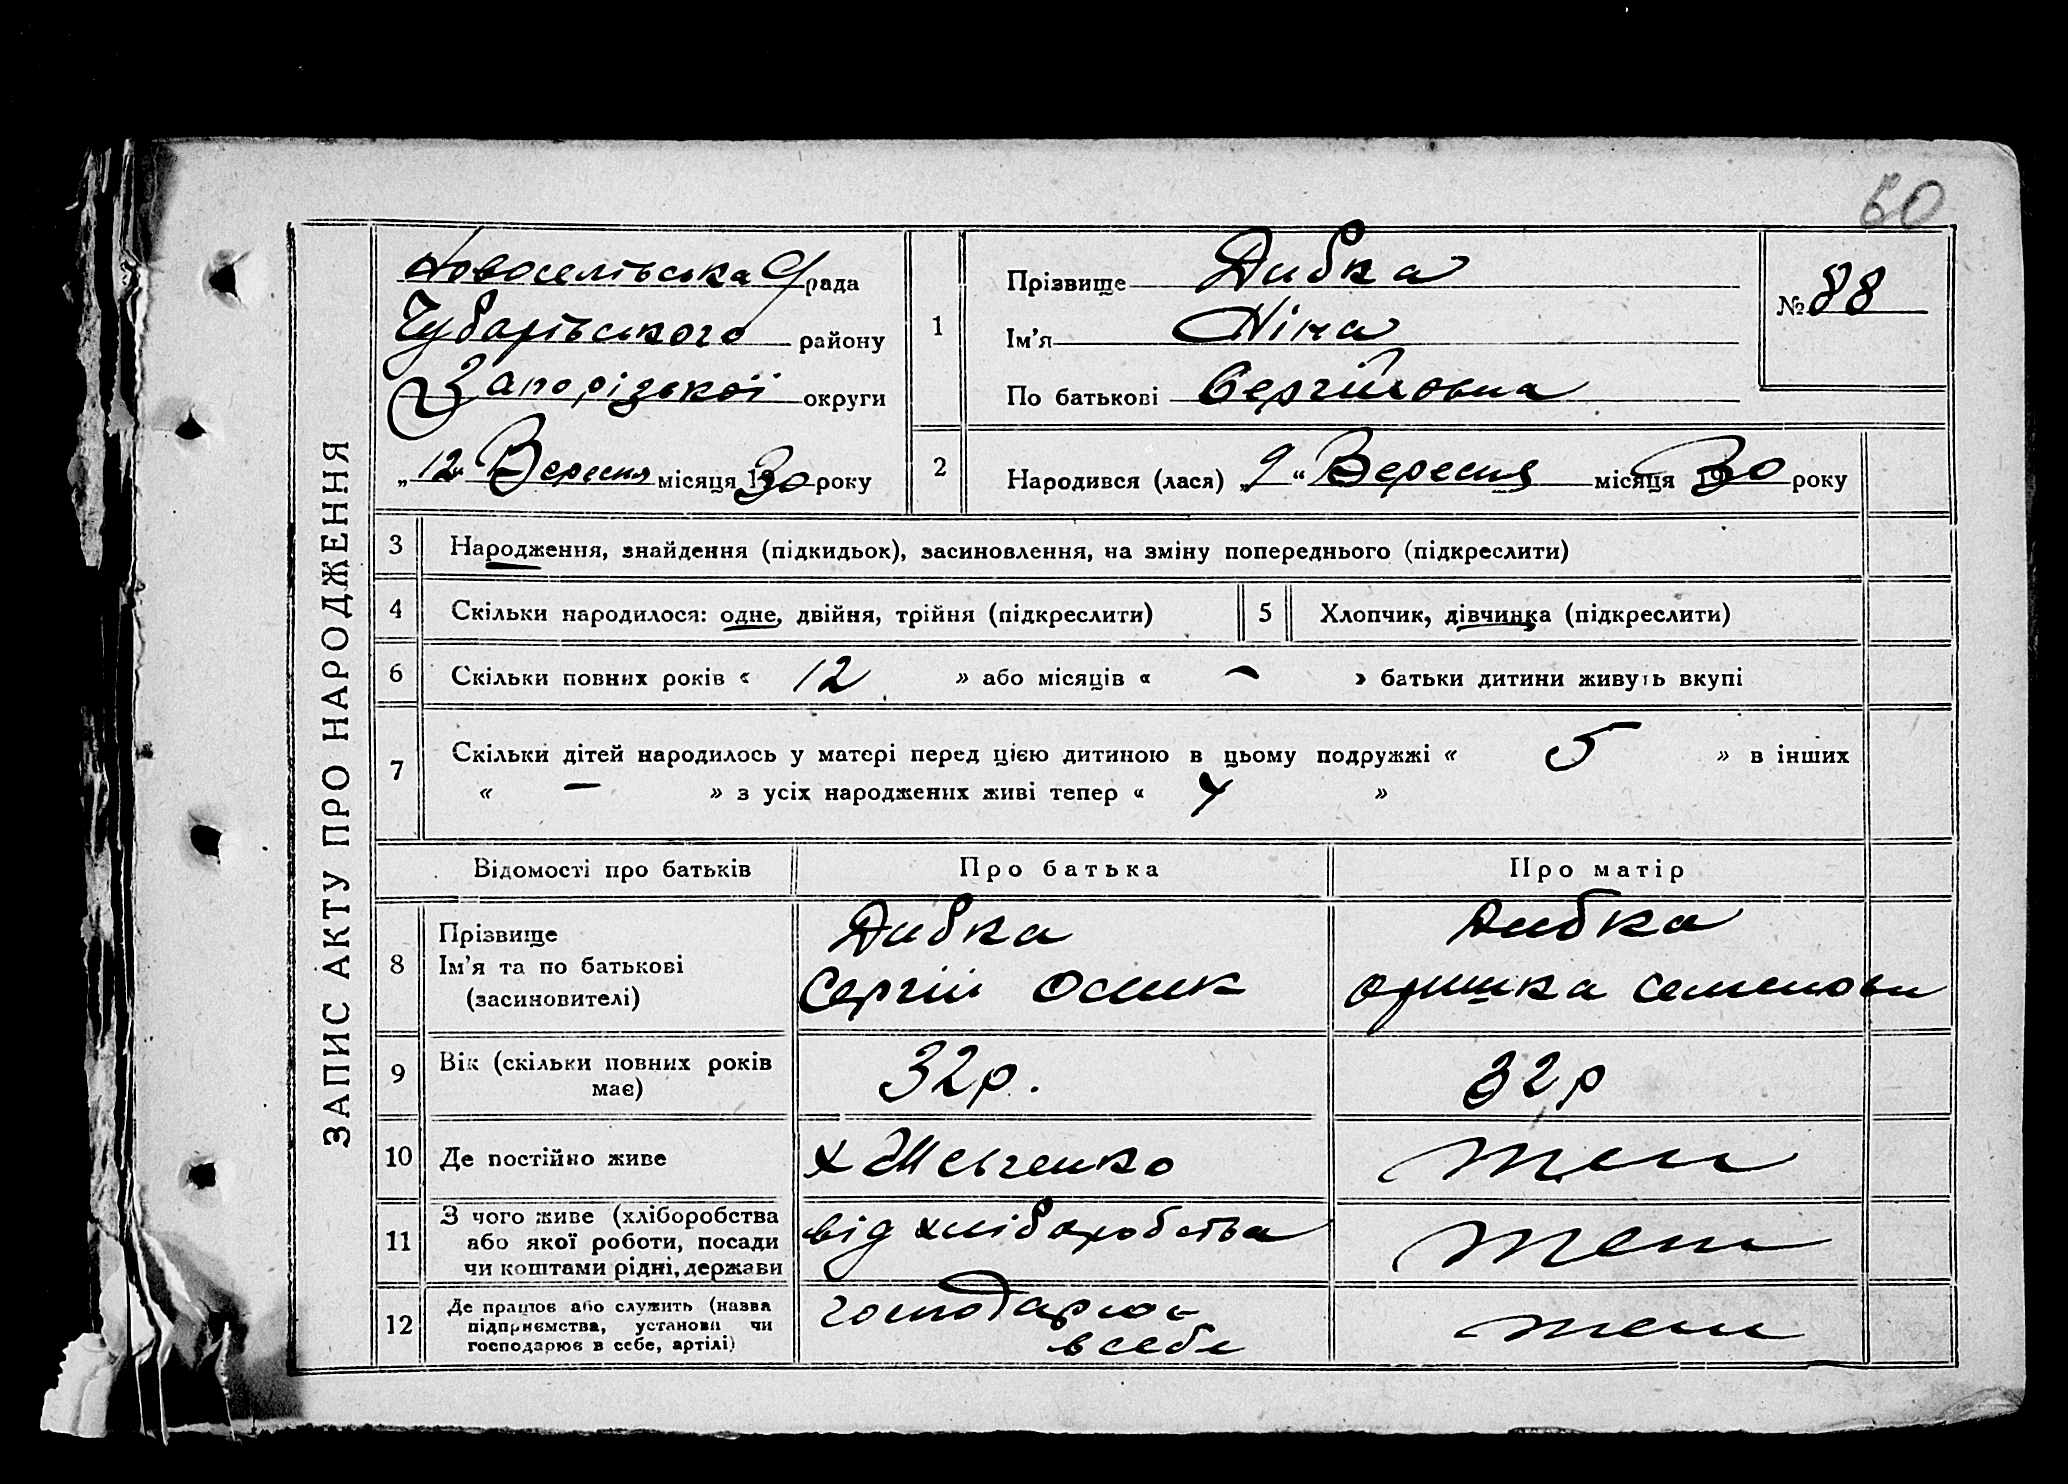 60
ЗАПИС АКТУ ПРО НАРОДЖЕННЯ
Новоселівська рада
Чубарівського району
Запорізької округи
„12“ Вересня місяця 1930 року
1
Прізвище Дибка
Ім’я Ніна
По батькові Сергіївна
№ 88
2 Народився (лася) „9“ Вересня місяця 1930 року
3 Народження, знайдення (підкидьок), засиновлення, на зміну попереднього (підкреслити)
4 Скільки народилося: одне, двійня, трійня (підкреслити) 5 Хлопчик, дівчинка (підкреслити)
6 Скільки повних років « 12 » або місяців « – » батьки дитини живуть вкупі
7 Скільки дітей народилось у матері перед цією дитиною в цьому подружжі « 5 » в інших
« – » з усіх народжених живі тепер « 4 »
Відомості про батьків Про батька Про матір
8 Прізвище
Ім’я та по батькові
(засиновителі)
Дибка
Сергій
Дибка
Оришка Семеновн
9 Вік (скільки повних років
має)
32р.
32р
10 Де постійно живе х Шевченко теж
11 З чого живе (хліборобства
або якої роботи, посади
чи коштами рідні, держави
від хліборобства
теж
12 Де працює або служить (назва
підприємства, установи чи
господарює в себе, артілі)
господарює
в себе
теж